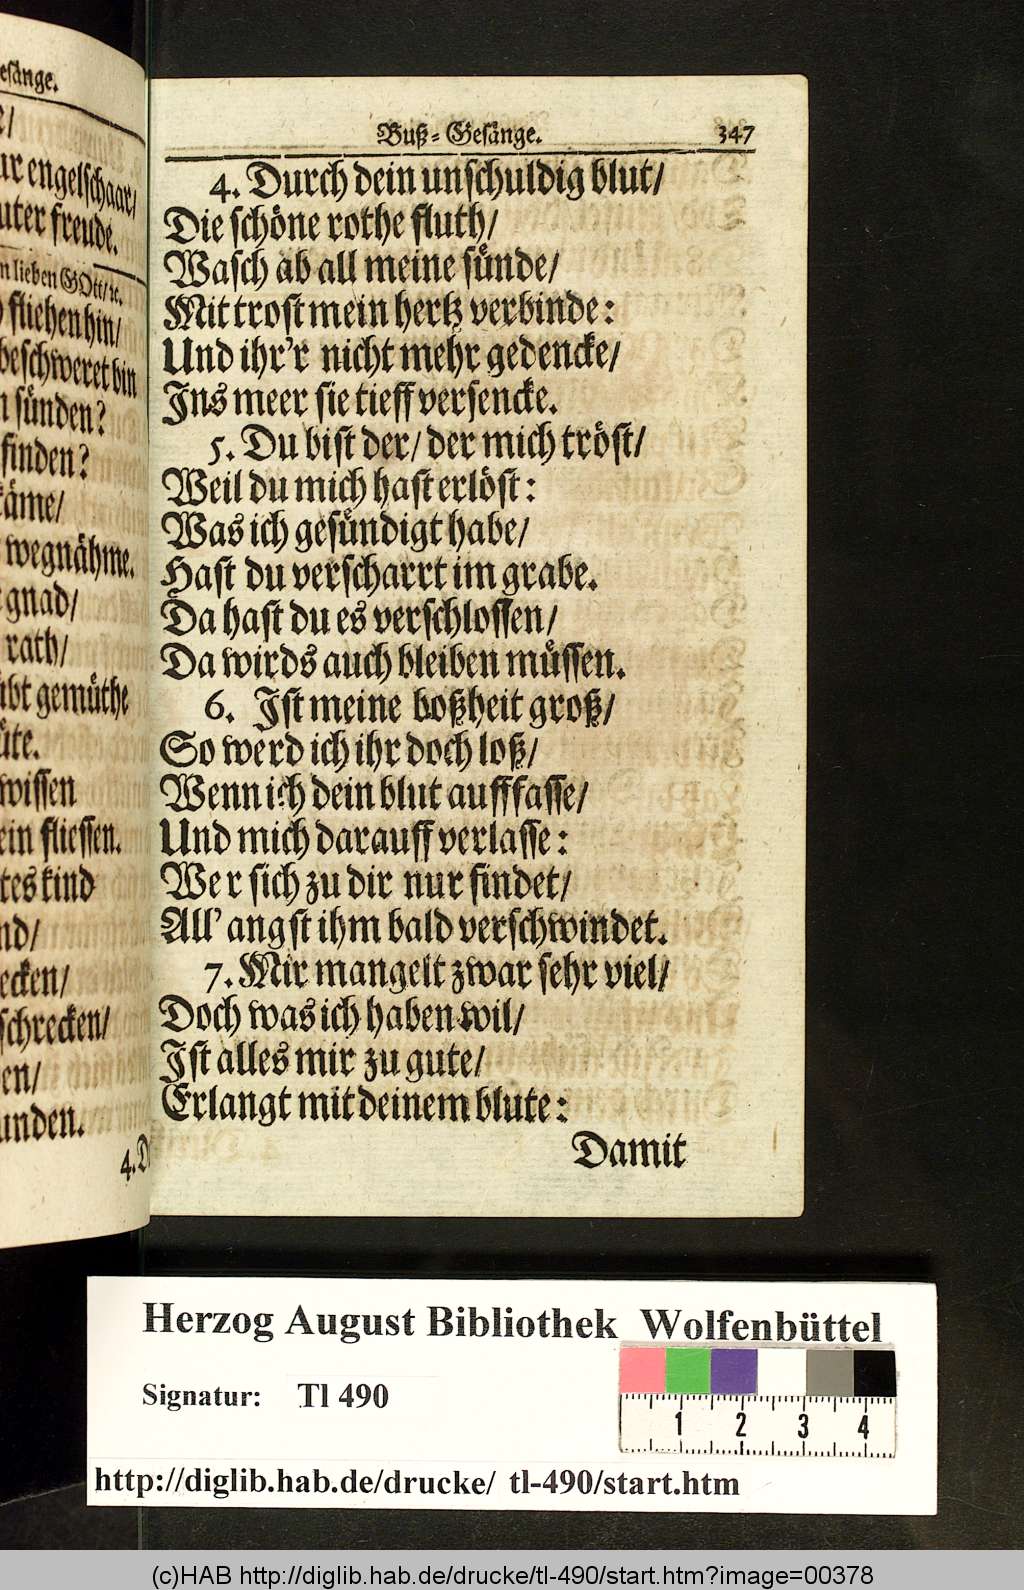 esänge.
e/
ur engelschaar/
uter freude.
n lieben GOtt/ ꝛc.
fliehen hin/
beschweret bin
n sünden?
finden?
käme/
wegnähme.
gnad/
rath/
übt gemüthe
üte.
wissen
ein fliessen.
tes kind
nd/
ecken/
schrecken/
en/
unden.
4. D
Buß-Gesänge. 347
4. Durch dein unschuldig blut/
Die schöne rothe fluth/
Wasch ab all meine sünde/
Mit trost mein hertz verbinde:
Und ihr'r nicht mehr gedencke/
Ins meer sie tieff versencke.
5. Du bist der/ der mich tröst/
Weil du mich hast erlöst:
Was ich gesündigt habe/
Hast du verscharrt im grabe.
Da hast du es verschlossen/
Da wirds auch bleiben müssen.
6. Ist meine boßheit groß/
So werd ich ihr doch loß/
Wenn ich dein blut aufffasse/
Und mich darauff verlasse:
Wer sich zu dir nur findet/
All' angst ihm bald verschwindet.
7. Mir mangelt zwar sehr viel/
Doch was ich haben wil/
Ist alles mir zu gute/
Erlangt mit deinem blute:
Damit
Herzog August Bibliothek Wolfenbüttel
Signatur: Tl 490
1 2 3 4
http://diglib.hab.de/drucke/ tl-490/start.htm
(c)HAB http://diglib.hab.de/drucke/tl-490/start.htm?image=00378